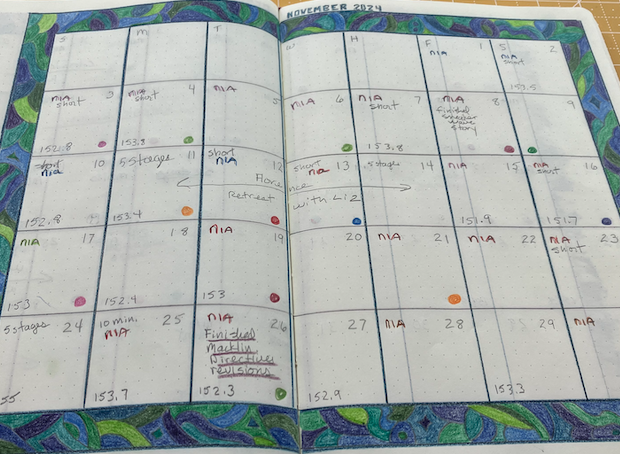 NOVEMBER 2024
S M T W H F S
1
NIA
2
NIA
short
151.5
3
NIA
short
152.8
4
NIA
short
153.8
5
NIA
6
NIA
7
NIA
short
153.8
8
NIA
Finished
story
9
10
short
NIA
152.8
11
5 stages
153.4
12
short
NIA
13
short
NIA
14
5 stages
Florence
Retreat with Liz
15
NIA
151.9
16
NIA
short
151.7
17
NIA
153
18
152.4
19
NIA
153
20
21
NIA
22
NIA
23
NIA
short
24
5 stages
55
25
10 min.
NIA
153.7
26
NIA
Finished
Macklin
Directive
revisions
152.3
27
152.9
28
NIA
29
153.3
NIA